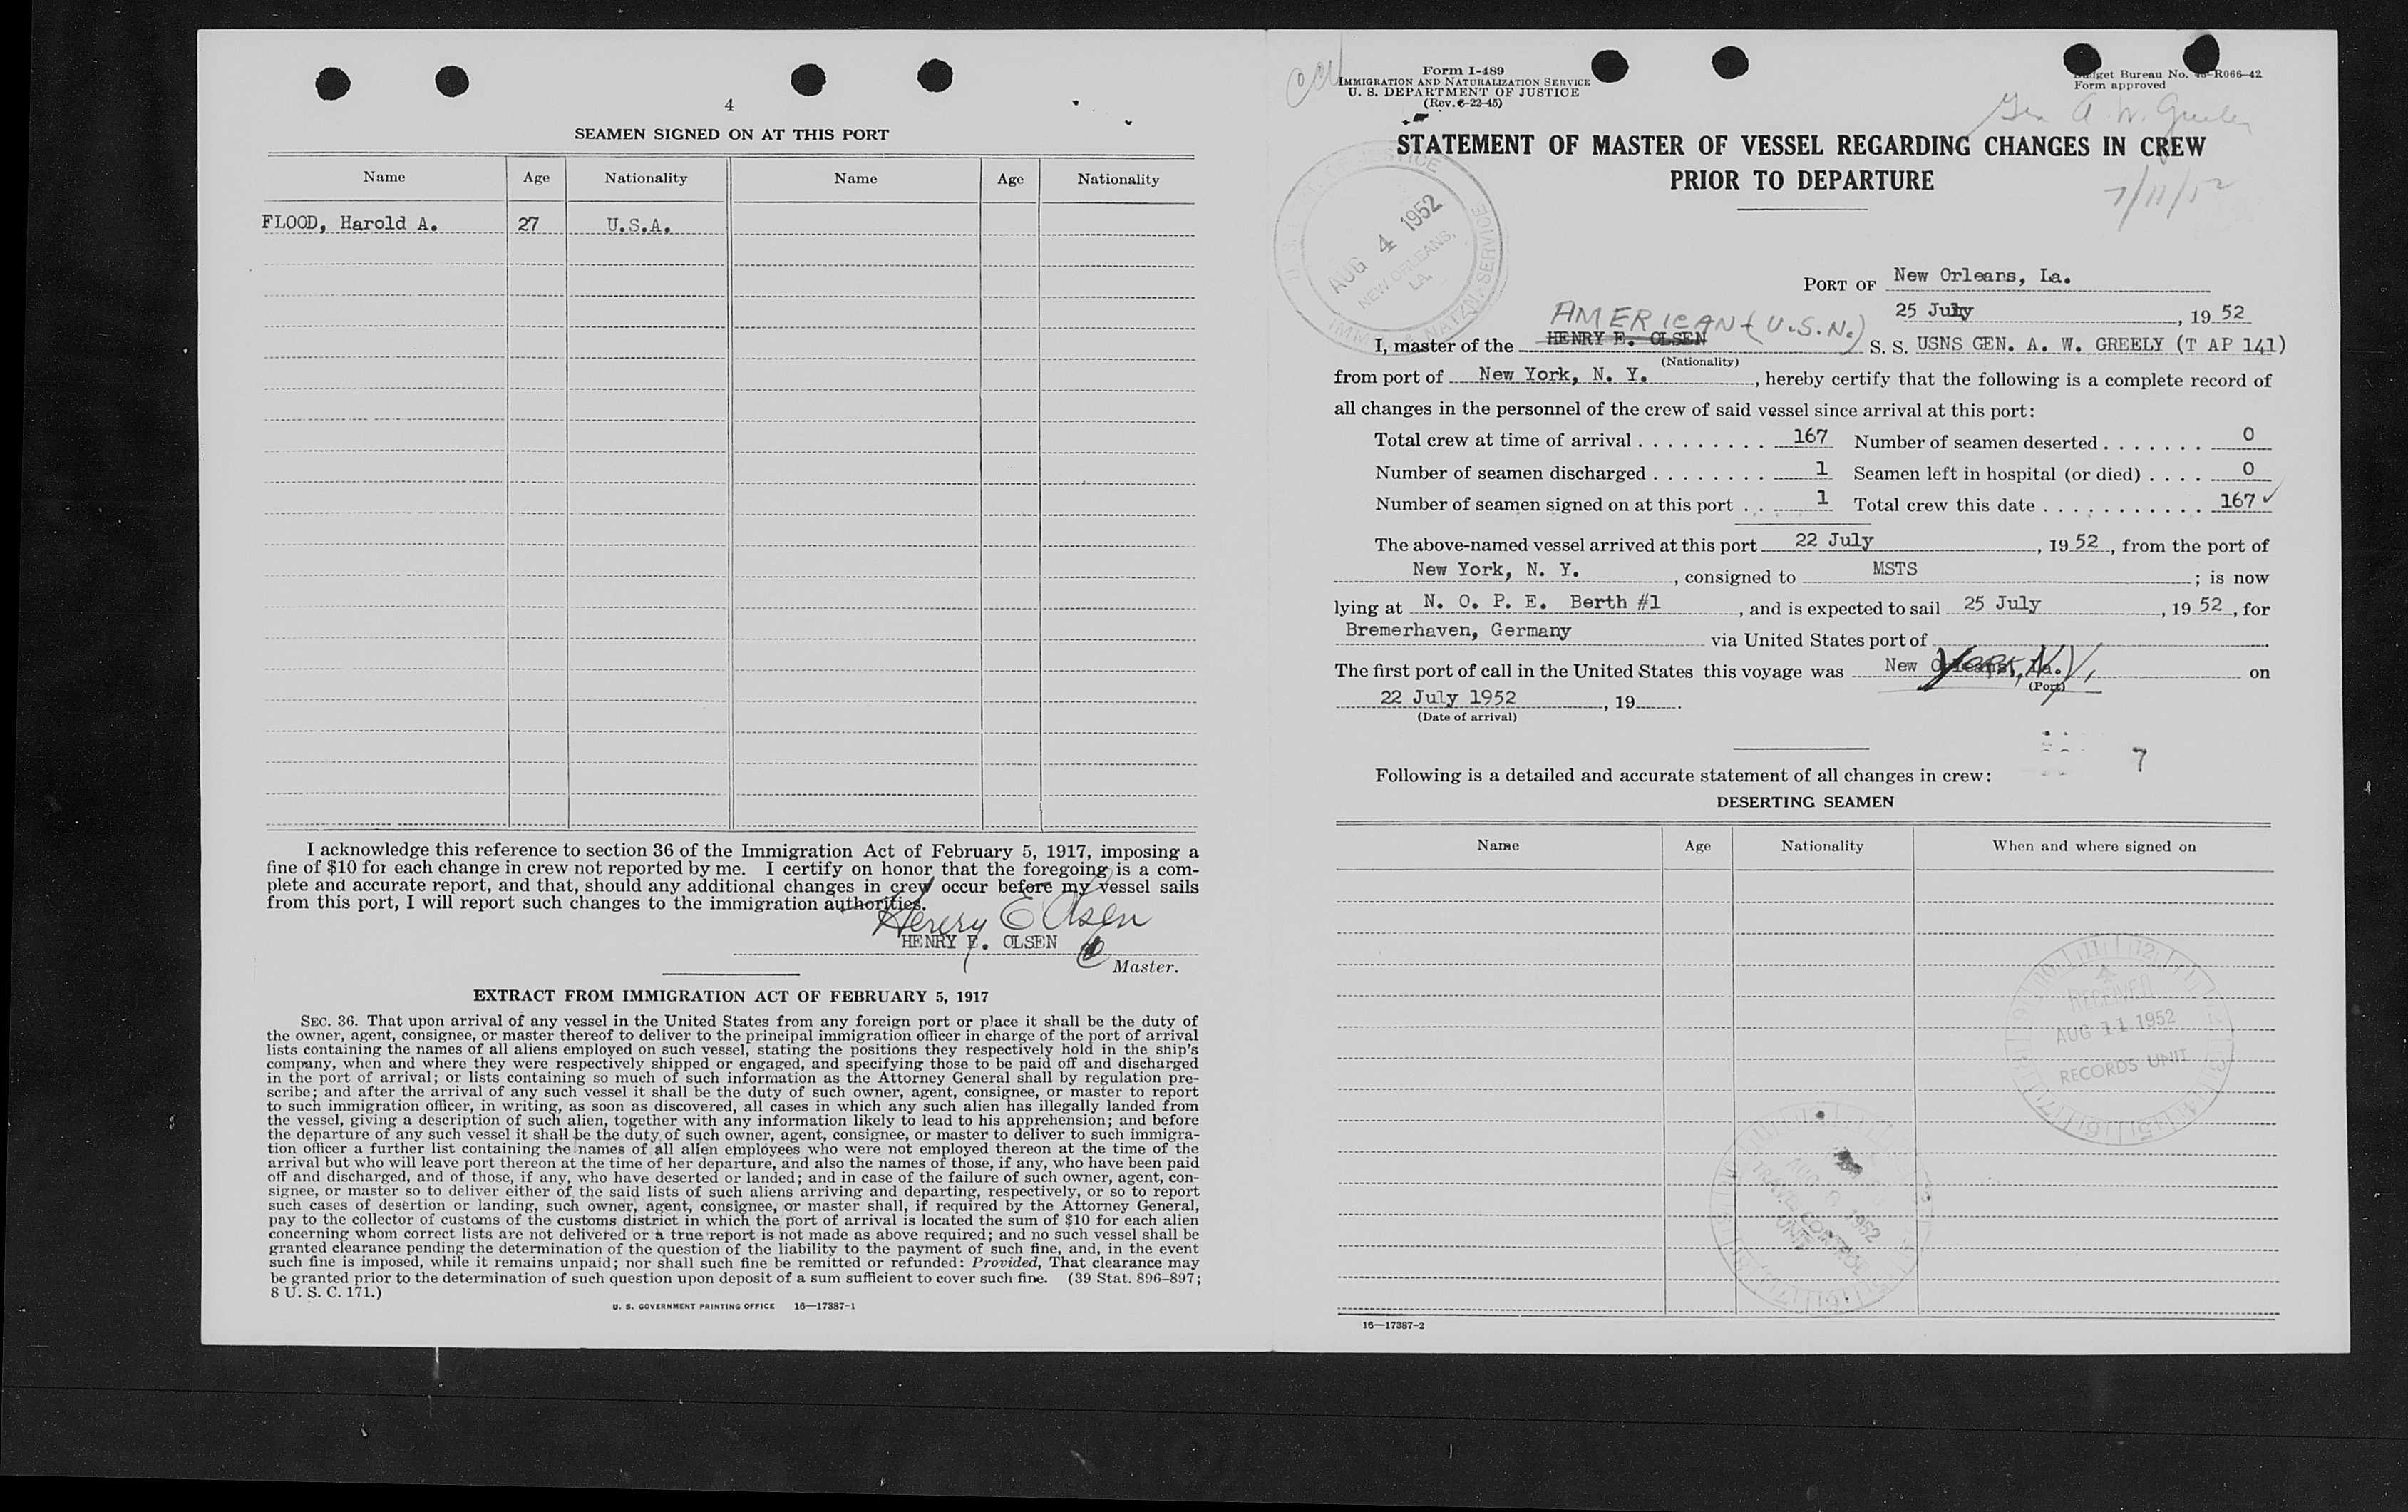 4
SEAMEN SIGNED ON AT THIS PORT
Name Age Nationality Name Age Nationality
FLOOD, Harold A. 27 U.S.A.
I acknowledge this reference to section 36 of the Immigration Act of February 5, 1917, imposing a
fine of $10 for each change in crew not reported by me. I certify on honor that the foregoing is a com-
plete and accurate report, and that, should any additional changes in crew occur before my vessel sails
from this port, I will report such changes to the immigration authorities.
Henry E Olsen
HENRY E. OLSEN
Master.
EXTRACT FROM IMMIGRATION ACT OF FEBRUARY 5, 1917
SEC. 36. That upon arrival of any vessel in the United States from any foreign port or place it shall be the duty of
the owner, agent, consignee, or master thereof to deliver to the principal immigration officer in charge of the port of arrival
lists containing the names of all aliens employed on such vessel, stating the positions they respectively hold in the ship's
company, when and where they were respectively shipped or engaged, and specifying those to be paid off and discharged
in the port of arrival; or lists containing so much of such information as the Attorney General shall by regulation pre-
scribe; and after the arrival of any such vessel it shall be the duty of such owner, agent, consignee, or master to report
to such immigration officer, in writing, as soon as discovered, all cases in which any such alien has illegally landed from
the vessel, giving a description of such alien, together with any information likely to lead to his apprehension; and before
the departure of any such vessel it shall be the duty of such owner, agent, consignee, or master to deliver to such immigra-
tion officer a further list containing the names of all alien employees who were not employed thereon at the time of the
arrival but who will leave port thereon at the time of her departure, and also the names of those, if any, who have been paid
off and discharged, and of those, if any, who have deserted or landed; and in case of the failure of such owner, agent, con-
signee, or master so to deliver either of the said lists of such aliens arriving and departing, respectively, or so to report
such cases of desertion or landing, such owner, agent, consignee, or master shall, if required by the Attorney General,
pay to the collector of customs of the customs district in which the port of arrival is located the sum of $10 for each alien
concerning whom correct lists are not delivered or a true report is not made as above required; and no such vessel shall be
granted clearance pending the determination of the question of the liability to the payment of such fine, and, in the event
such fine is imposed, while it remains unpaid; nor shall such fine be remitted or refunded: Provided, That clearance may
be granted prior to the determination of such question upon deposit of a sum sufficient to cover such fine. (39 Stat. 896-897;
8 U. S. C. 171.)
U. S. GOVERNMENT PRINTING OFFICE 16—17387-1
Form I-489
IMMIGRATION AND NATURALIZATION SERVICE
U. S. DEPARTMENT OF JUSTICE
(Rev. 6-22-45)
Budget Bureau No. 43-R066-42
Form approved
Gen A. W. Greely
STATEMENT OF MASTER OF VESSEL REGARDING CHANGES IN CREW
PRIOR TO DEPARTURE
7/11/52
AUG 4 1952
NEW ORLEANS,
LA.
IMM. & NATZN. SERVICE
PORT OF New Orleans, La.
25 July, 19 52
AMERICAN (U.S.N.)
I, master of the HENRY E. OLSEN S. S. USNS GEN. A. W. GREELY (T AP 141)
(Nationality)
from port of New York, N. Y., hereby certify that the following is a complete record of
all changes in the personnel of the crew of said vessel since arrival at this port:
Total crew at time of arrival . . . . . . . . . 167 Number of seamen deserted . . . . . . . 0
Number of seamen discharged . . . . . . . . 1 Seamen left in hospital (or died) . . . . 0
Number of seamen signed on at this port . . 1 Total crew this date . . . . . . . . . . . 167 ✓
The above-named vessel arrived at this port 22 July, 19 52, from the port of
New York, N. Y., consigned to MSTS; is now
lying at N. O. P. E. Berth #1, and is expected to sail 25 July, 19 52, for
Bremerhaven, Germany via United States port of
The first port of call in the United States this voyage was New Orleans, La. York, N.Y. on
(Port)
22 July 1952, 19
(Date of arrival)
7
Following is a detailed and accurate statement of all changes in crew:
DESERTING SEAMEN
Name Age Nationality When and where signed on
RECEIVED
AUG 11 1952
RECORDS UNIT
AUG 1952
TRAVEL CONTROL
UNIT
16—17387-2